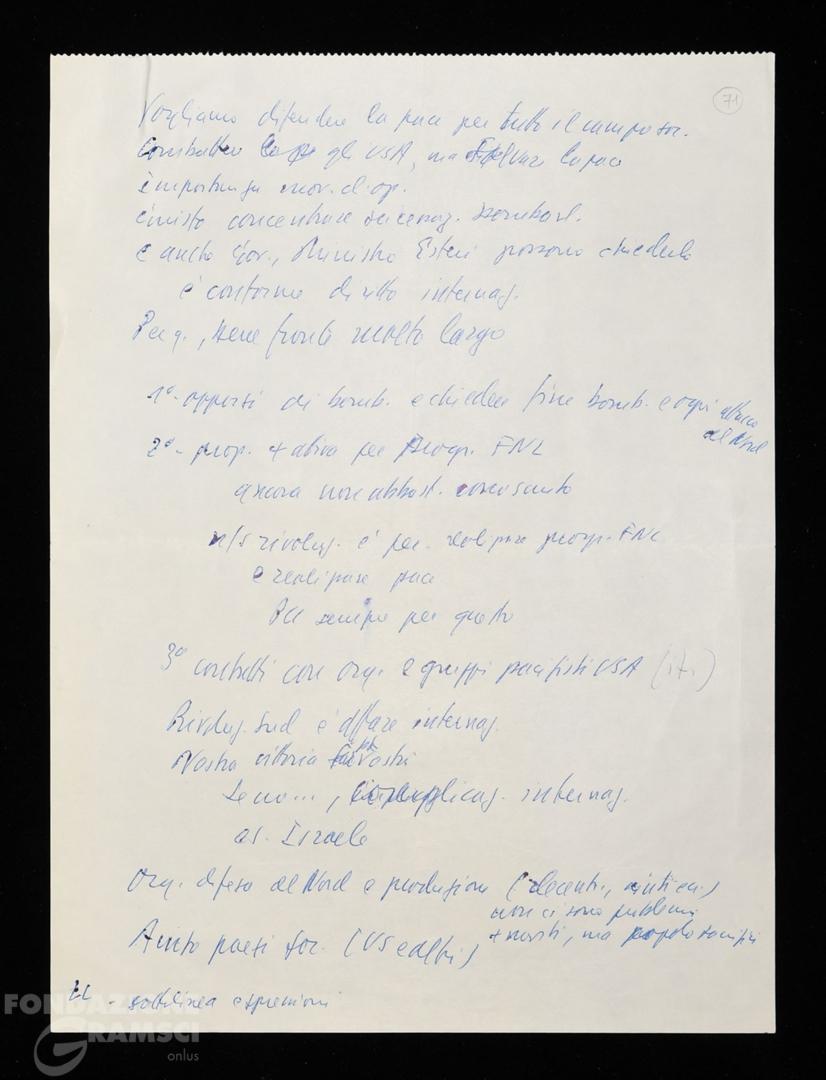 71
Vogliamo difendere la pace per tutto il campo soc.
combattere gli USA, ma salvare la pace
importanza mov. d'op.
concentrare su cessaz. bombard.
e anche Gov., Ministro Esteri possono chiederlo
è conforme diritto internaz.
Per q., serve fronte molto largo
1°- opporsi ai bomb. e chiedere fine bomb. e ogni attacco
al Nord
2°- prop. + attiva per Progr. FNL
ancora non abbast. conosciuto
n/s rivoluz. è per realizzare progr. FNL
e realizzare pace
PCI sempre per questo
3° contatti con org. e gruppi pacifisti USA (it.)
Rivoluz. Sud è affare internaz.
Nostra vittoria Vostri
Se no..., internaz.
es. Israele
Org. difesa del Nord e produzione (decentr., aiuti)
non ci sono problemi
+ morti, ma popolo
Aiuto paesi soc. (US e altri)
LL - sottolinea espressioni
FONDAZIONE
GRAMSCI
onlus